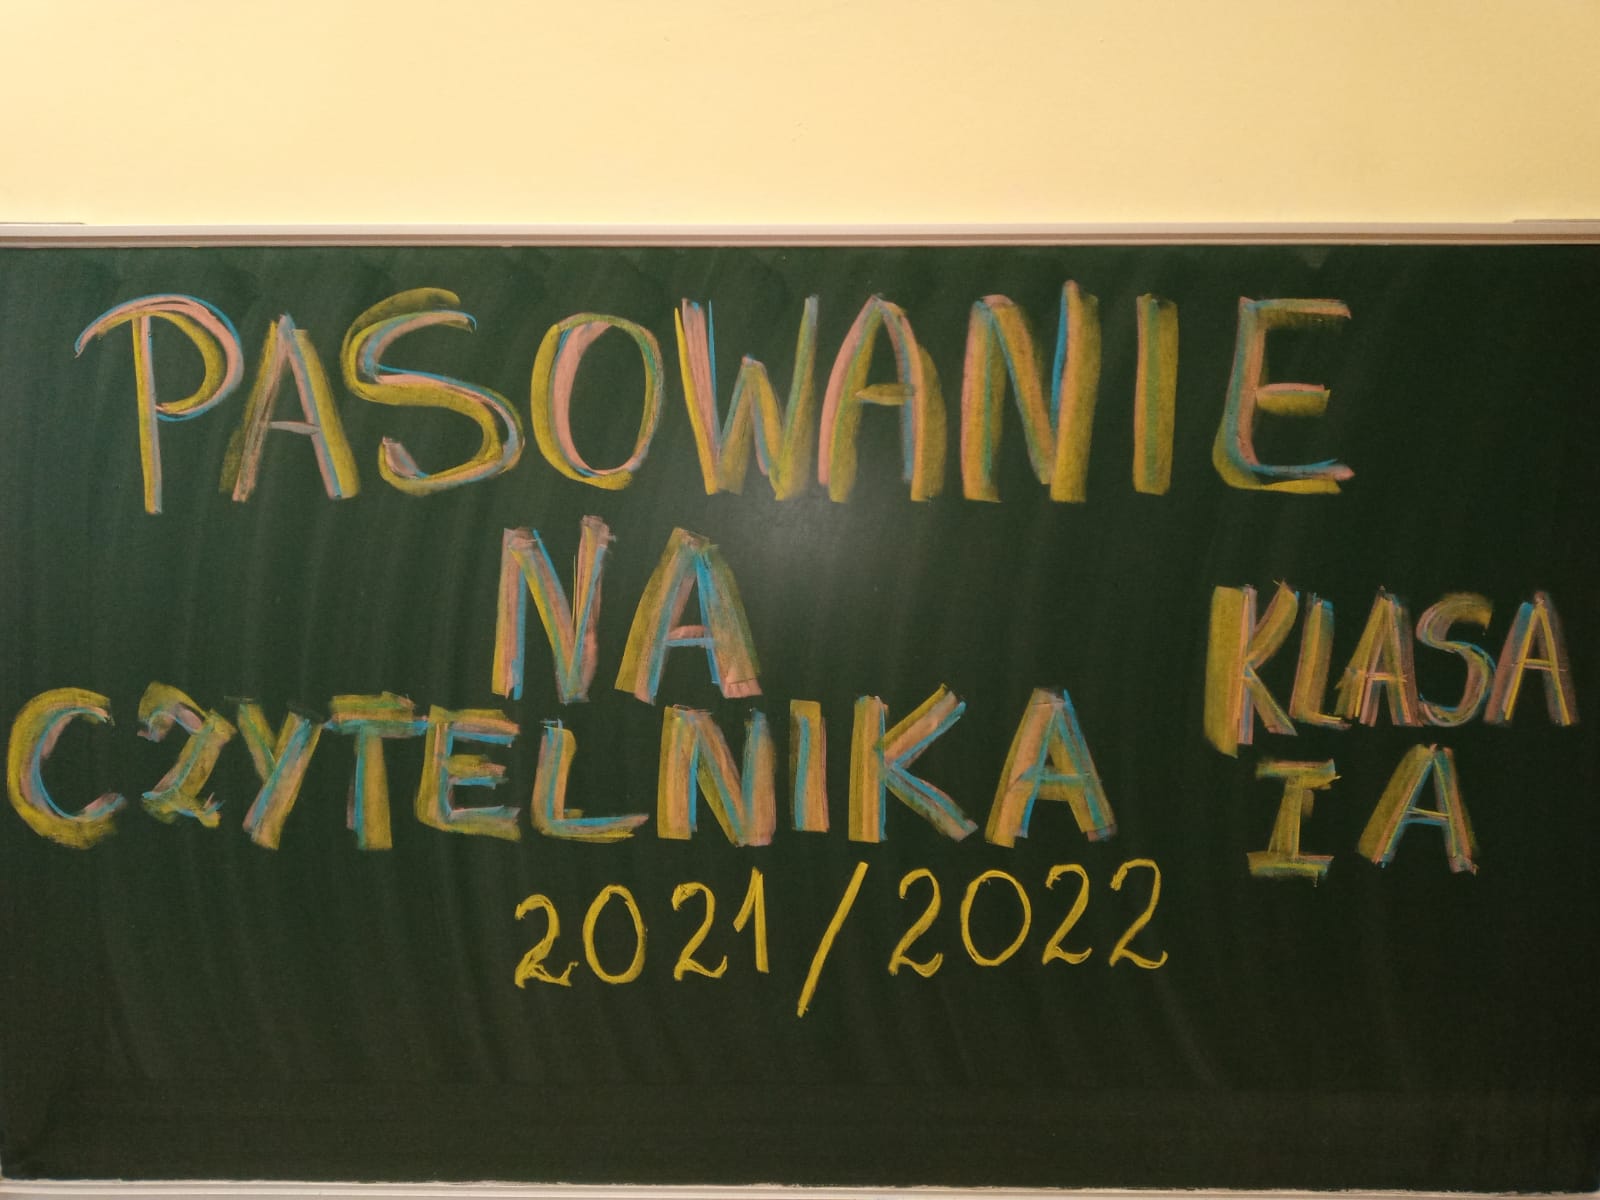 PASOWANIE
NA
CZYTELNIKA
2021/2022
KLASA
I A